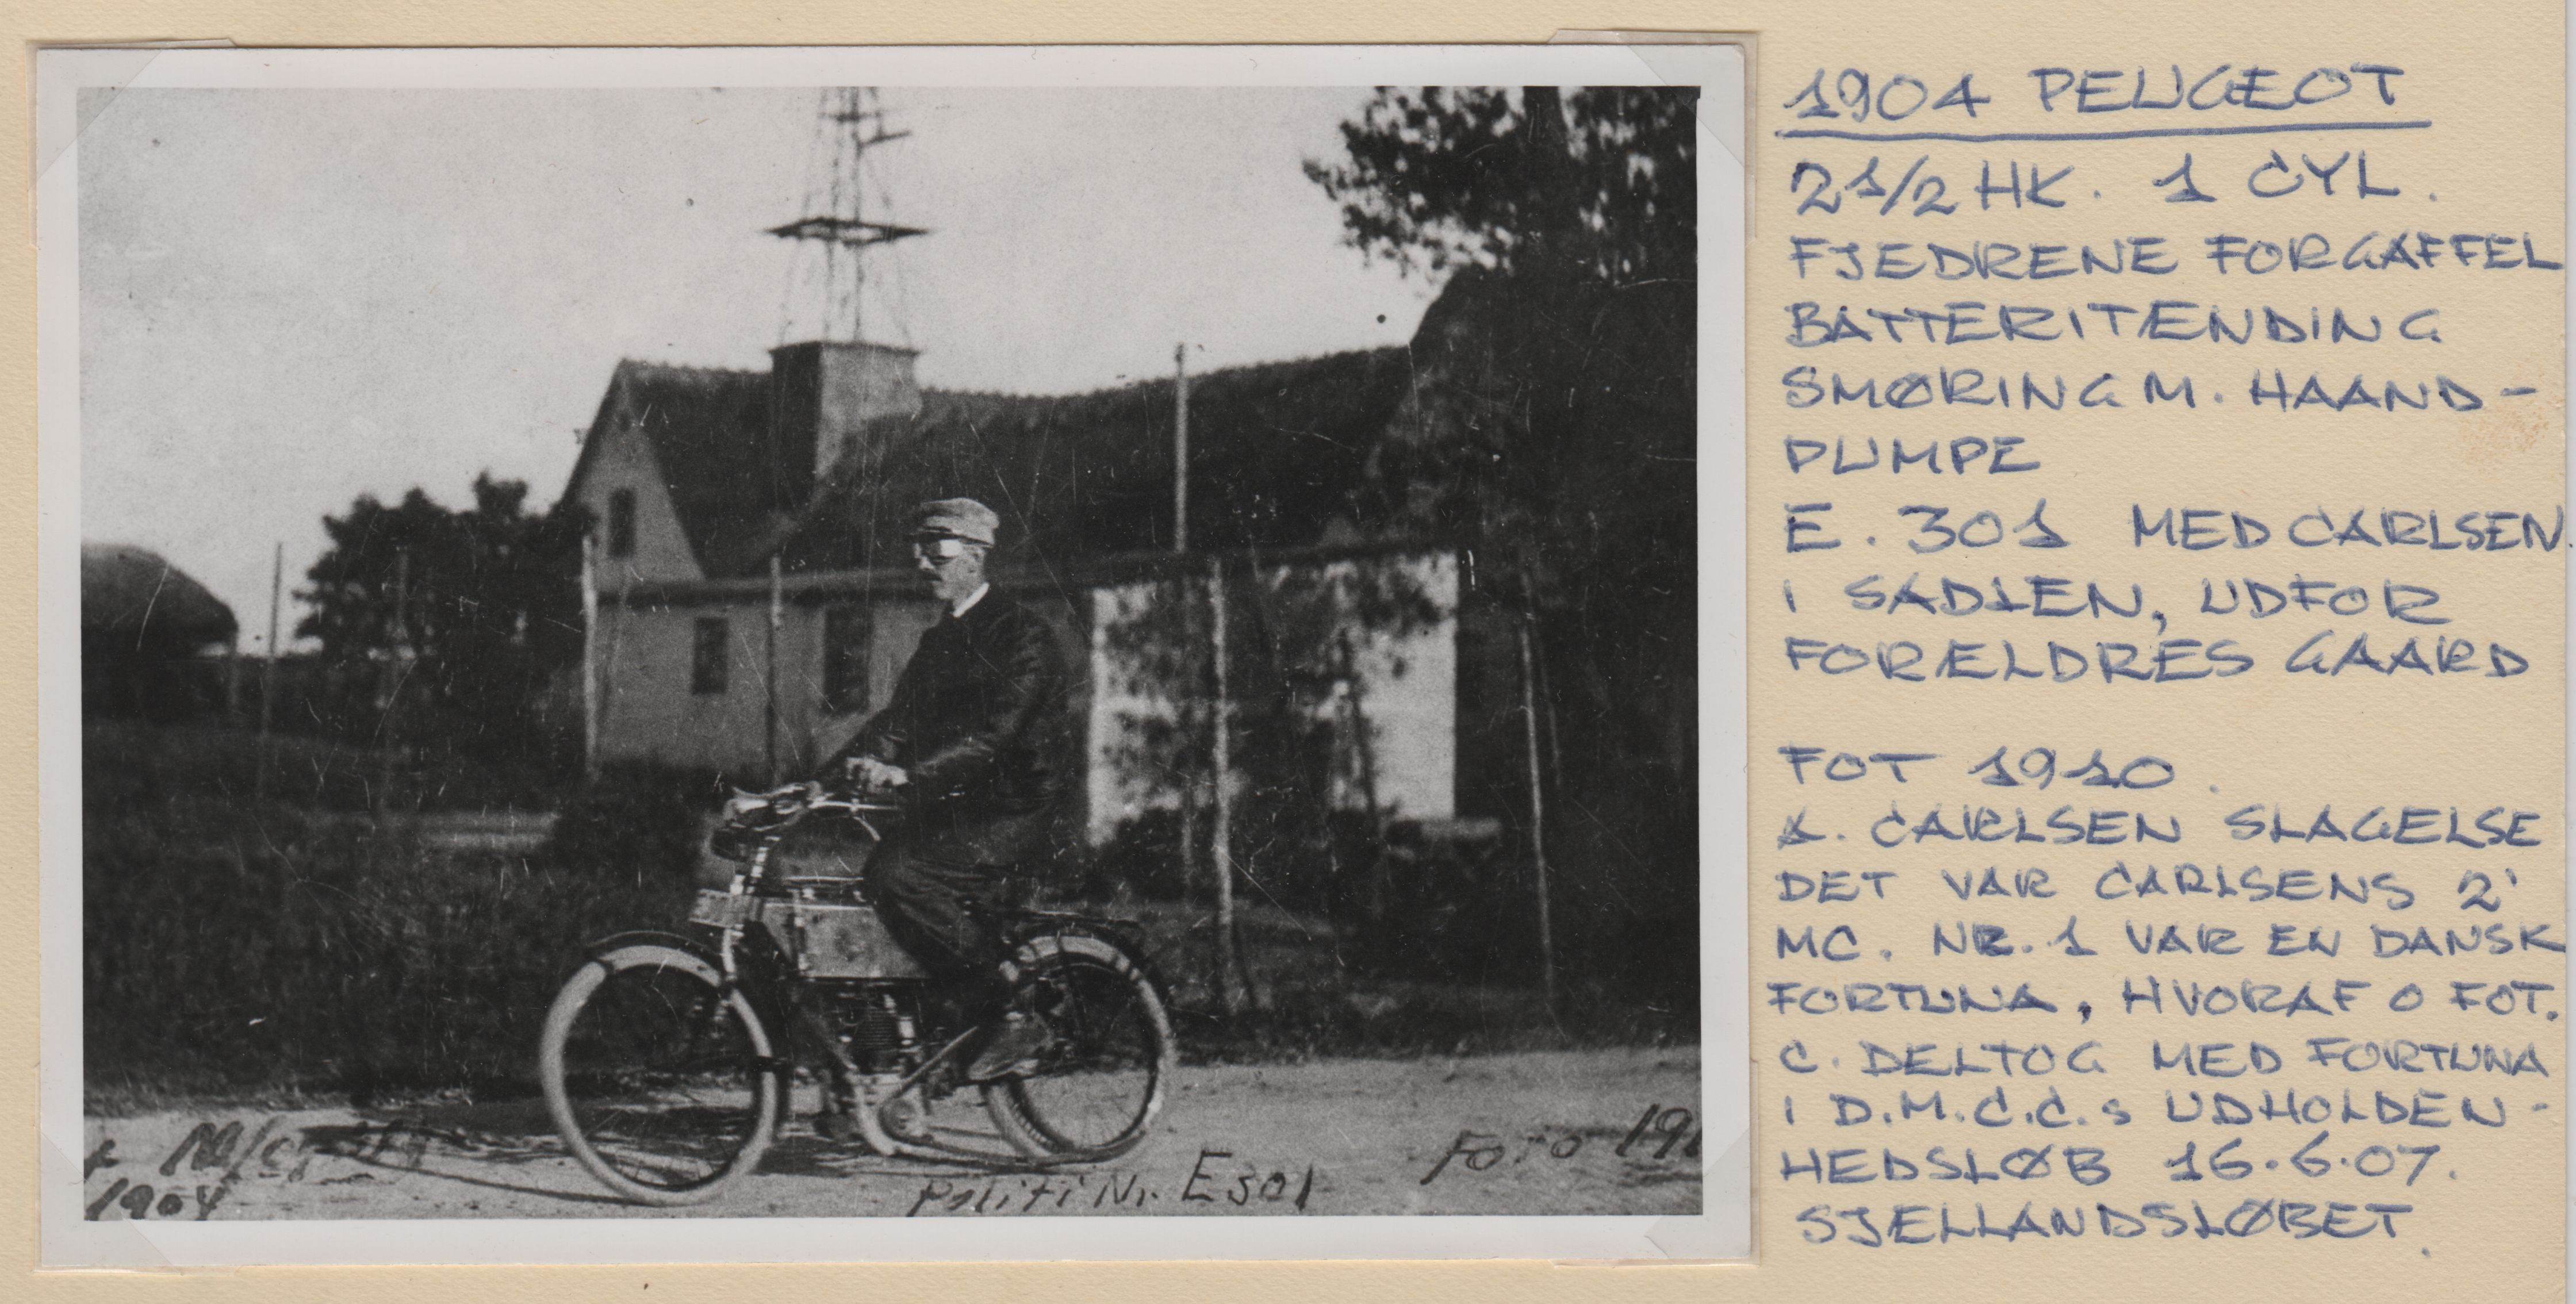 1904 PEUGEOT
2 1/2 HK. 1 CYL.
FJEDRENE FORGAFFEL
BATTERITÆNDING
SMØRING M. HAAND-
PUMPE
E. 301 MED CARLSEN.
I SADLEN, UDFOR
FORÆLDRES GAARD
FOT 1910.
A. CARLSEN SLAGELSE
DET VAR CARLSENS 2'
MC. NR. 1 VAR EN DANSK
FORTUNA, HVORAF O FOT.
C. DELTOG MED FORTUNA
I D.M.C.C.s UDHOLDEN-
HEDSLØB 16.6.07.
SJÆLLANDSLØBET.
M/c
1904
Politi Nr. E301
Foto 191